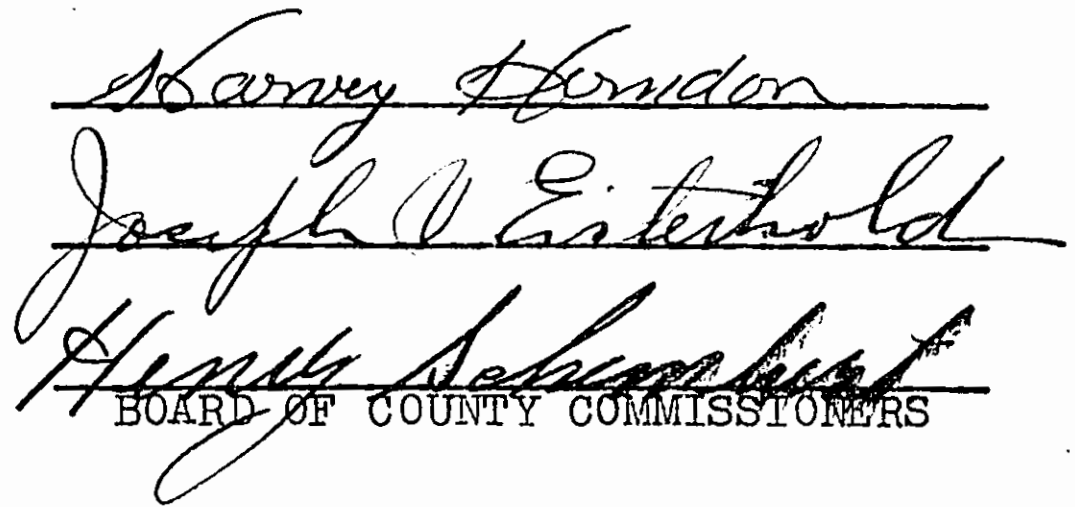 Harvey Herndon
Joseph V Eisterhold
Henry
BOARD OF COUNTY COMMISSIONERS